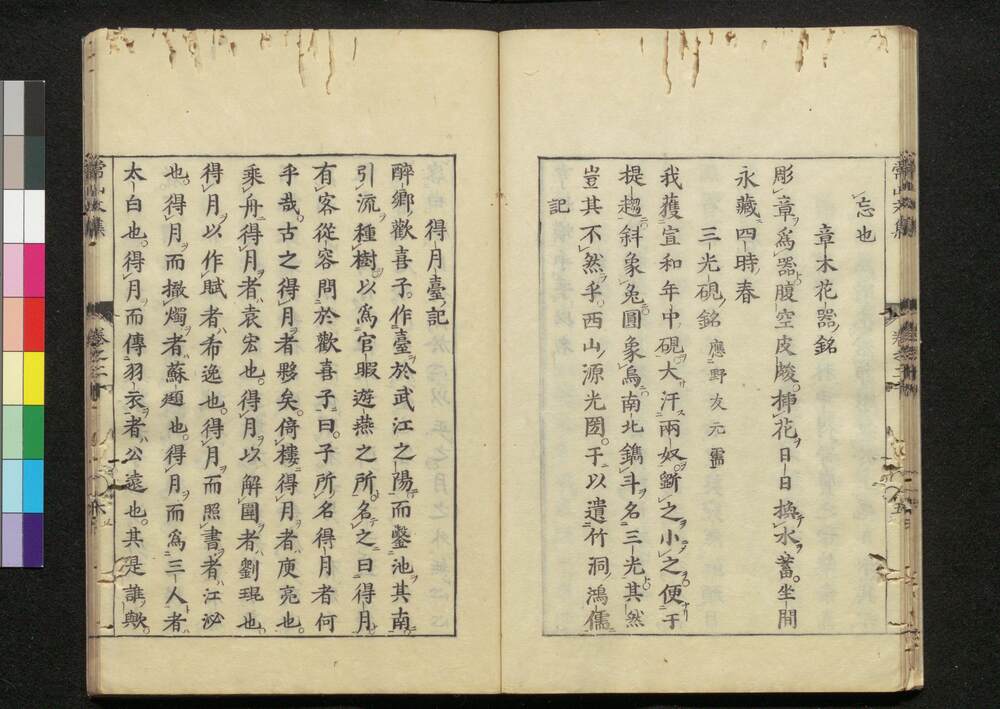 忘也
章木花器銘
彫章爲器腹空皮皴挿花日日換水蓄坐間
永藏四時春
三光硯銘 應野友元需
我獲宣和年中硯大汗兩奴斲之小之便于
提趨斜象兔圓象烏南北鐫斗名三光其然
豈其不然乎西山源光圀于以遺竹洞鴻儒
記
得月臺記
醉鄉歡喜子作臺於武江之陽而鑿池其南
引流種樹以爲官暇遊燕之所名之曰得月
有客從容問於歡喜子曰子所名得月者何
乎哉古之得月者夥矣倚樓得月者庾亮也
乘舟得月者袁宏也得月以解圍者劉琨也
得月以作賦者希逸也得月而照書者江泌
也得月而撤燭者蘇頲也得月而爲三人者
太白也得月而傳羽衣者公遠也其是誰歟
常山文集
卷之二十